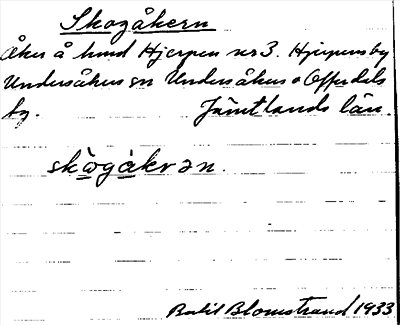 Skogåkern
Åker å hmd Hjerpen nr 3. Hjerpens by
Undersåkers sn Undersåkers o Offerdals
tg. Jämtlands län.
skωgåkrən.
Bertil Blomstrand 1933